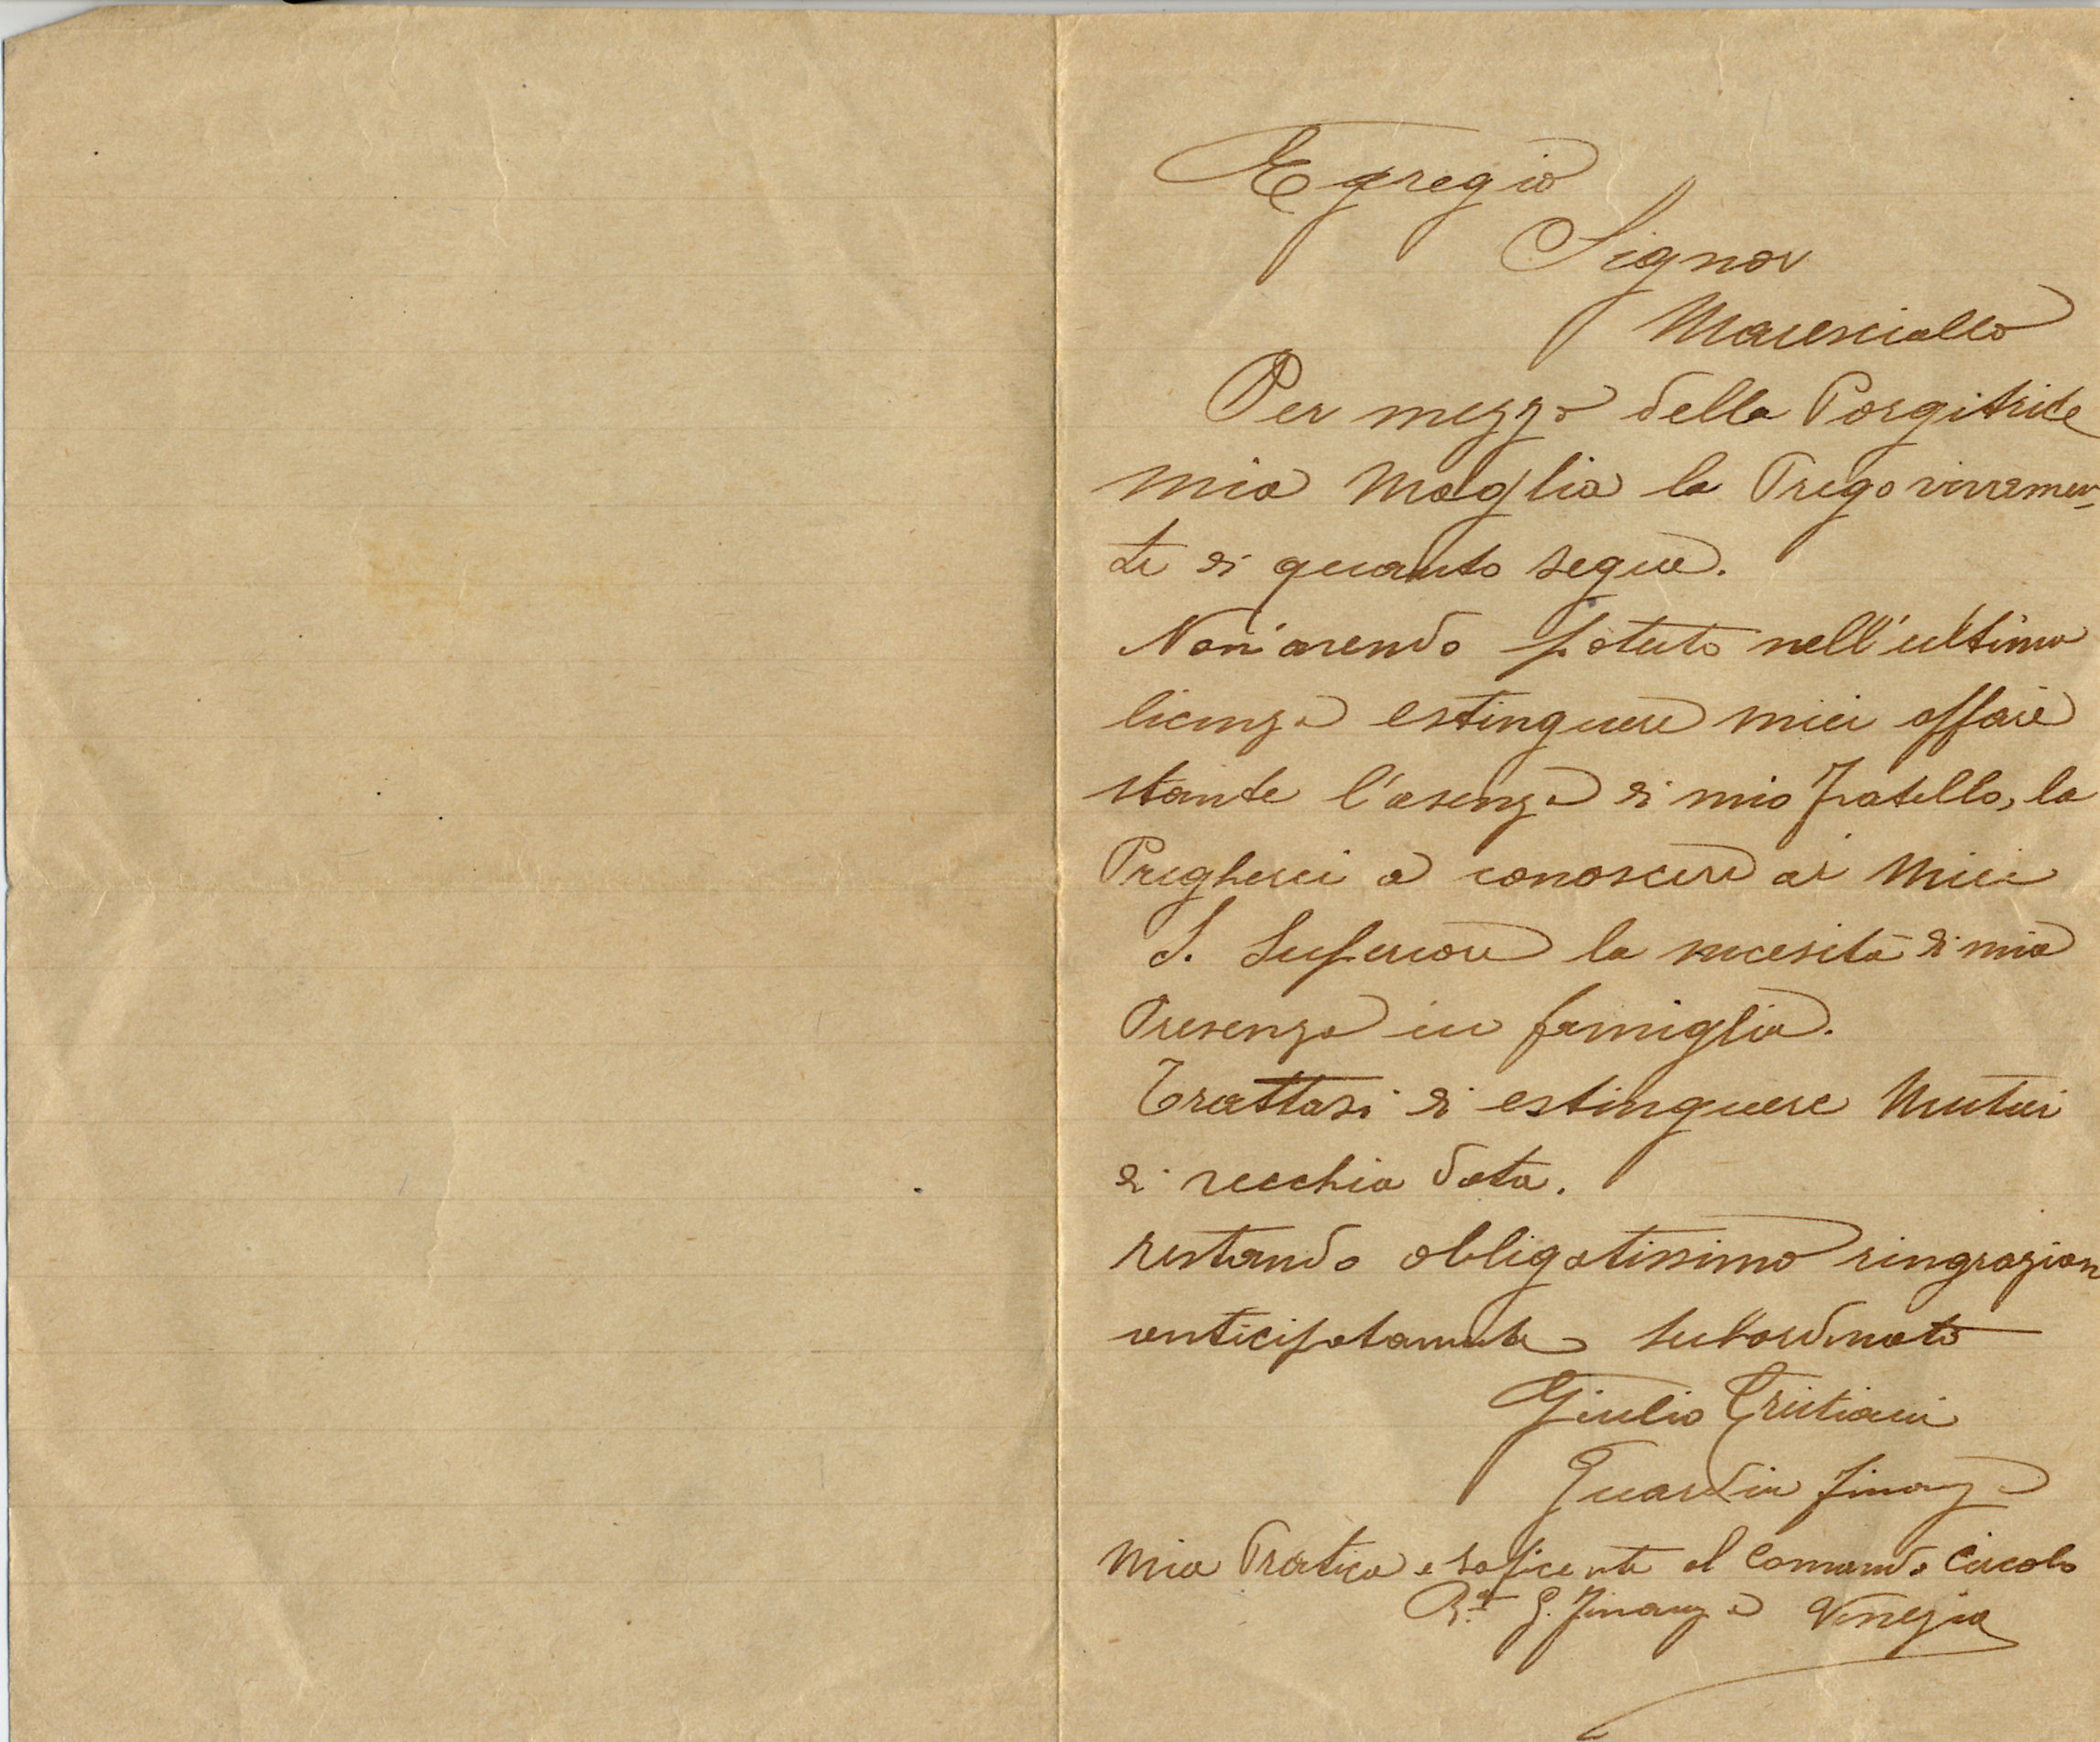 Egregio
Signor
Maresciallo
Per mezzo della Porgitrice
mia Moglia la Prego vivamen-
te di quanto segue.
Non avendo potuto nell'ultima
licenza estinguere miei affari
stante l'asenza di mio Fratello, la
Pregherei a conoscere ai Miei
S. Superiori la necesità di mia
Presenza in famiglia.
Trattasi di estinguere Mutui
di vecchia data.
restando obligatissimo ringrazian
anticipatamente subordinato
Giulio Cristiani
Guardia Finanza
Mia Pratica e al Comando Circolo
R.a G. Finanza Venezia